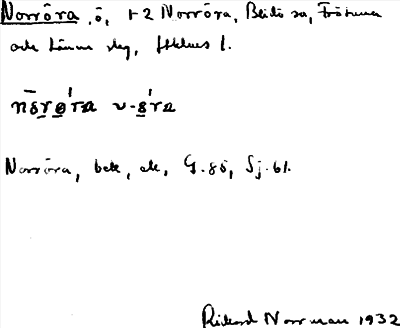 Norröra, ö, +2 Norröra, Blidö sn, Frötuna
och Länna skg, Sthlms l.
nōrøra v-øra
Norröra, beb, ek, G.85, Sj.61.
Rickard Norrman 1932